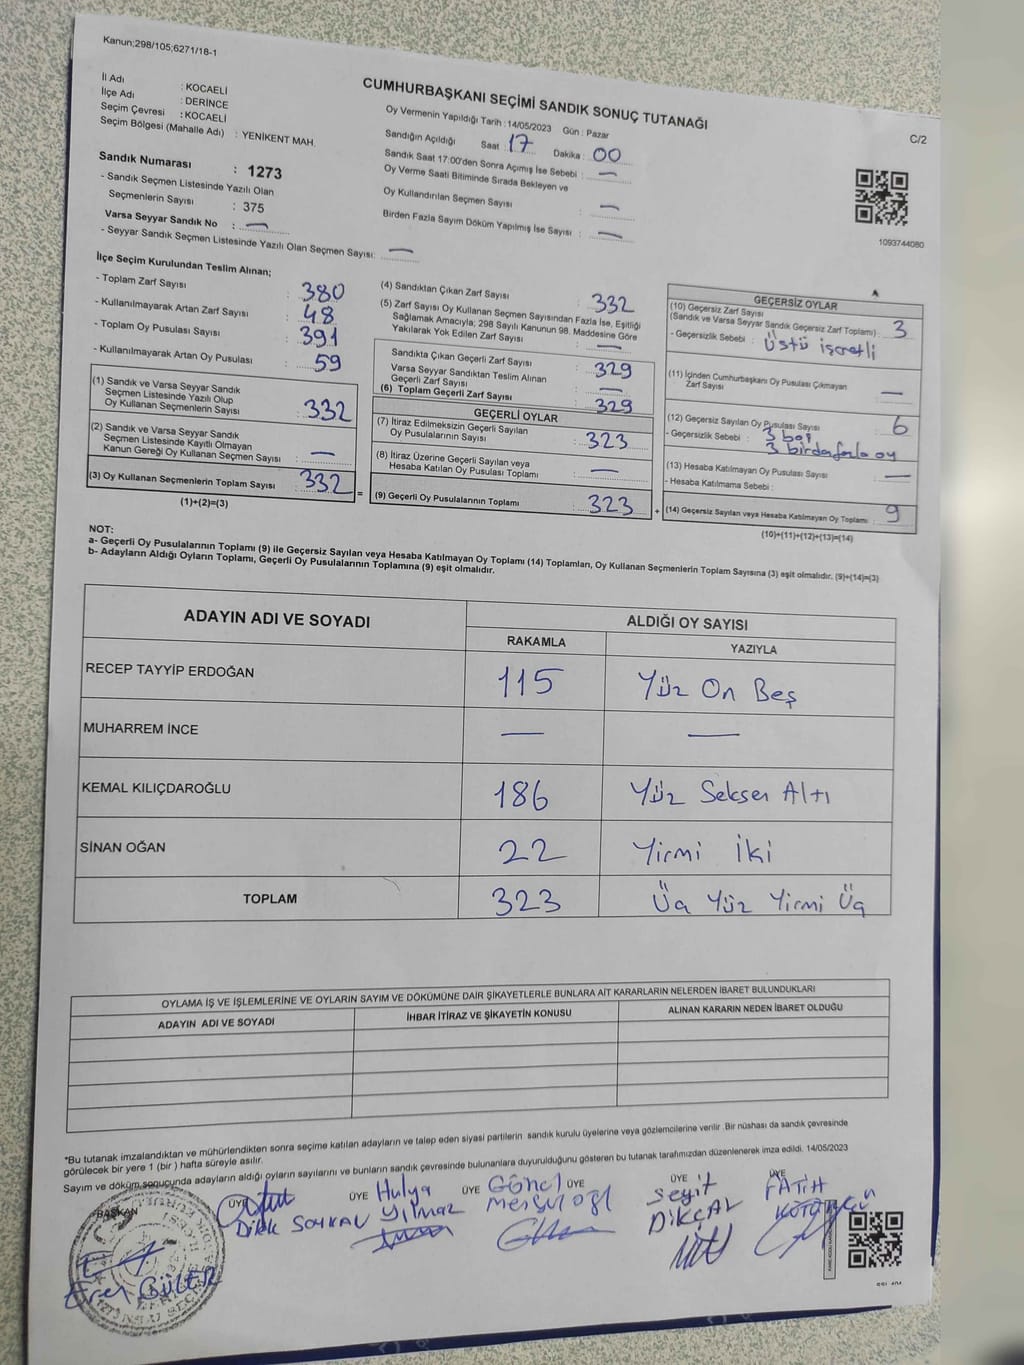 Kanun;298/105;6271/18-1
CUMHURBAŞKANI SEÇİMİ SANDIK SONUÇ TUTANAĞI
C/2
İl Adı : KOCAELİ
İlçe Adı : DERİNCE
Seçim Çevresi : KOCAELİ
Seçim Bölgesi (Mahalle Adı) : YENİKENT MAH.
Oy Vermenin Yapıldığı Tarih : 14/05/2023 Gün : Pazar
Sandığın Açıldığı Saat 17 Dakika : 00
Sandık Saat 17:00'den Sonra Açımış İse Sebebi : —
Oy Verme Saati Bitiminde Sırada Bekleyen ve
Oy Kullandırılan Seçmen Sayısı : —
Birden Fazla Sayım Döküm Yapılmış İse Sayısı : —
1093744080
Sandık Numarası : 1273
- Sandık Seçmen Listesinde Yazılı Olan
Seçmenlerin Sayısı : 375
Varsa Seyyar Sandık No : —
- Seyyar Sandık Seçmen Listesinde Yazılı Olan Seçmen Sayısı: —
İlçe Seçim Kurulundan Teslim Alınan;
- Toplam Zarf Sayısı : 380
- Kullanılmayarak Artan Zarf Sayısı : 48
- Toplam Oy Pusulası Sayısı : 391
- Kullanılmayarak Artan Oy Pusulası : 59
(1) Sandık ve Varsa Seyyar Sandık
Seçmen Listesinde Yazılı Olup
Oy Kullanan Seçmenlerin Sayısı : 332
(2) Sandık ve Varsa Seyyar Sandık
Seçmen Listesinde Kayıtlı Olmayan
Kanun Gereği Oy Kullanan Seçmen Sayısı : —
(3) Oy Kullanan Seçmenlerin Toplam Sayısı : 332 =
(1)+(2)=(3)
(4) Sandıktan Çıkan Zarf Sayısı : 332
(5) Zarf Sayısı Oy Kullanan Seçmen Sayısından Fazla İse, Eşitliği
Sağlamak Amacıyla; 298 Sayılı Kanunun 98. Maddesine Göre
Yakılarak Yok Edilen Zarf Sayısı : —
Sandıkta Çıkan Geçerli Zarf Sayısı : 329
Varsa Seyyar Sandıktan Teslim Alınan
Geçerli Zarf Sayısı : —
(6) Toplam Geçerli Zarf Sayısı : 329
GEÇERLİ OYLAR
(7) İtiraz Edilmeksizin Geçerli Sayılan
Oy Pusulalarının Sayısı : 323
(8) İtiraz Üzerine Geçerli Sayılan veya
Hesaba Katılan Oy Pusulası Toplamı : —
(9) Geçerli Oy Pusulalarının Toplamı : 323 +
GEÇERSİZ OYLAR
(10) Geçersiz Zarf Sayısı
(Sandık ve Varsa Seyyar Sandık Geçersiz Zarf Toplamı) : 3
- Geçersizlik Sebebi : Üstü işcretli
(11) İçinden Cumhurbaşkanı Oy Pusulası Çıkmayan
Zarf Sayısı : —
(12) Geçersiz Sayılan Oy Pusulası Sayısı : 6
- Geçersizlik Sebebi : 3 boş
3 birdafazla oy
(13) Hesaba Katılmayan Oy Pusulası Sayısı : —
- Hesaba Katılmama Sebebi :
(14) Geçersiz Sayılan veya Hesaba Katılmayan Oy Toplamı : 9
(10)+(11)+(12)+(13)=(14)
NOT:
a- Geçerli Oy Pusulalarının Toplamı (9) ile Geçersiz Sayılan veya Hesaba Katılmayan Oy Toplamı (14) Toplamları, Oy Kullanan Seçmenlerin Toplam Sayısına (3) eşit olmalıdır. (9)+(14)=(3)
b- Adayların Aldığı Oyların Toplamı, Geçerli Oy Pusulalarının Toplamına (9) eşit olmalıdır.
ADAYIN ADI VE SOYADI ALDIĞI OY SAYISI
RAKAMLA YAZIYLA
RECEP TAYYİP ERDOĞAN 115 Yüz On Beş
MUHARREM İNCE — —
KEMAL KILIÇDAROĞLU 186 Yüz Seksen Altı
SİNAN OĞAN 22 Yirmi İki
TOPLAM 323 Üç Yüz Yirmi Üç
OYLAMA İŞ VE İŞLEMLERİNE VE OYLARIN SAYIM VE DÖKÜMÜNE DAİR ŞİKAYETLERLE BUNLARA AİT KARARLARIN NELERDEN İBARET BULUNDUKLARI
ADAYIN ADI VE SOYADI İHBAR İTİRAZ VE ŞİKAYETİN KONUSU ALINAN KARARIN NEDEN İBARET OLDUĞU
*Bu tutanak imzalandıktan ve mühürlendikten sonra seçime katılan adayların ve talep eden siyasi partilerin sandık kurulu üyelerine veya gözlemcilerine verilir .Bir nüshası da sandık çevresinde
görülecek bir yere 1 (bir ) hafta süreyle asılır.
Sayım ve döküm sonucunda adayların aldığı oyların sayılarını ve bunların sandık çevresinde bulunanlara duyurulduğunu gösteren bu tutanak tarafımızdan düzenlenerek imza edildi. 14/05/2023
BAŞKAN ÜYE ÜYE ÜYE ÜYE ÜYE ÜYE
Eren GÜLER
Dilek SOYKAN
Hulya Yılmaz
Gönül
Seyit DİKÇAL
FATİH